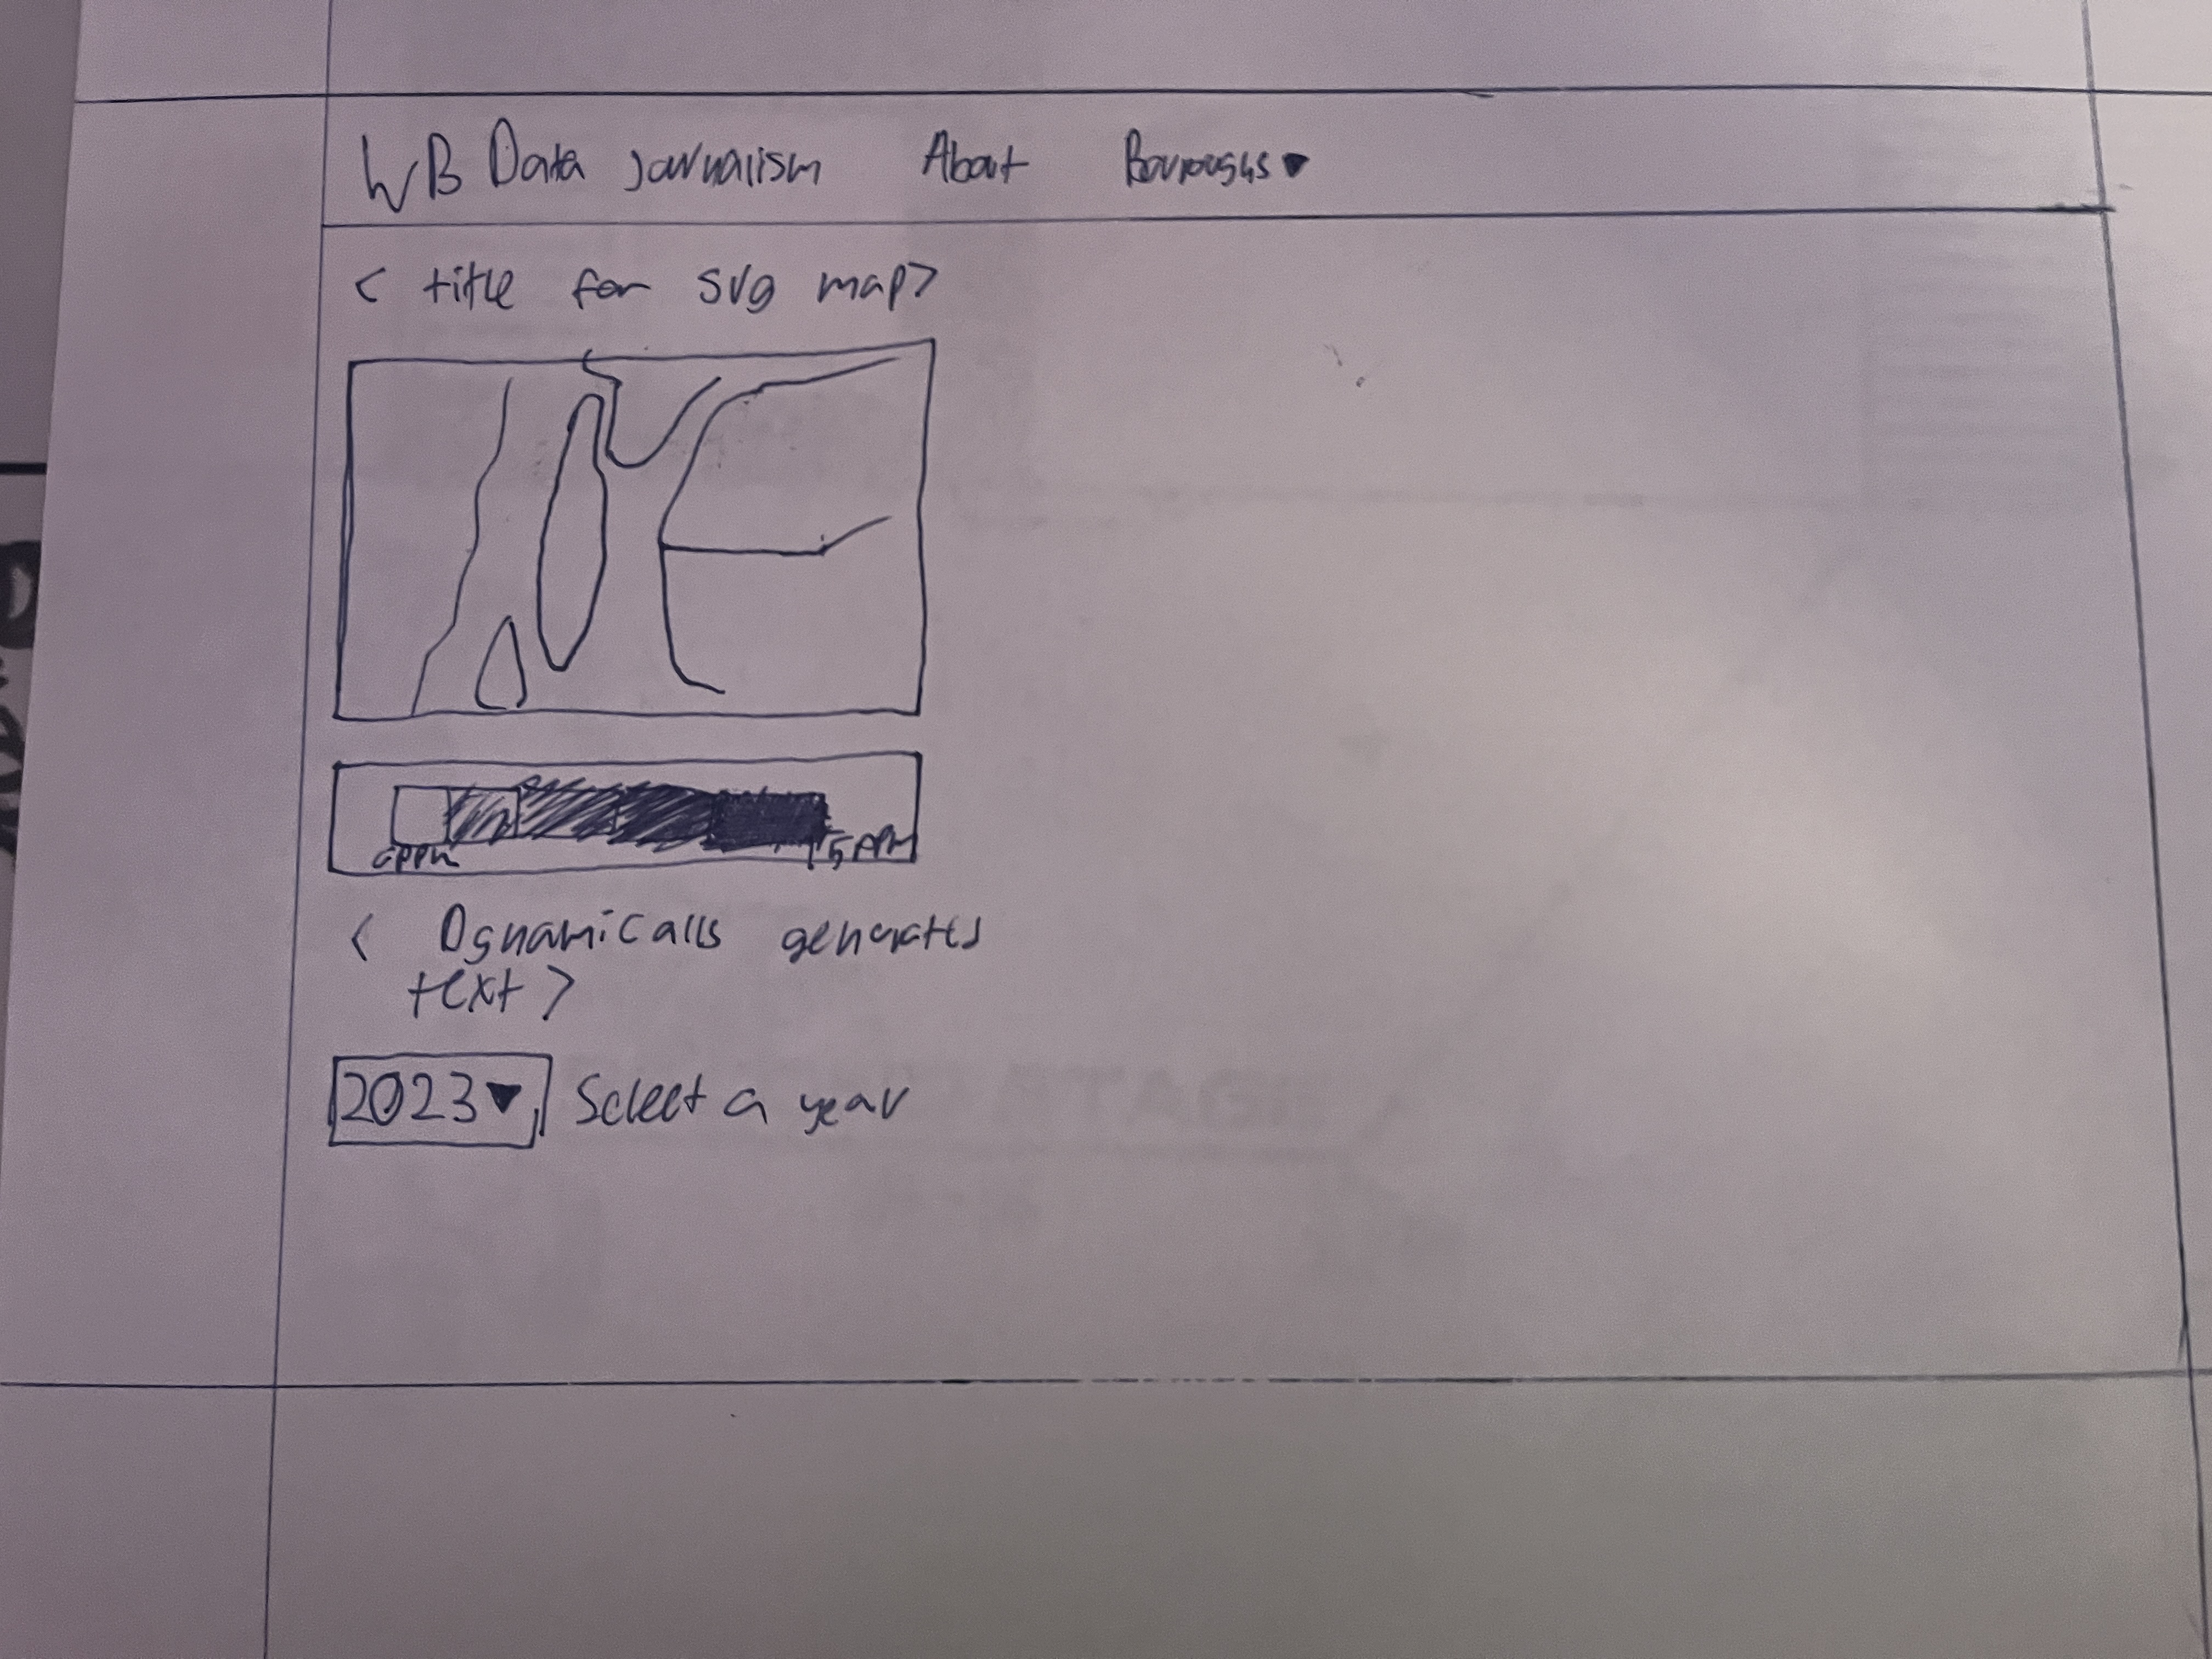 WB Data Journalism About
< title for svg map>
0PPM 15PPM
< Dynamically generates
text >
2023▼ Select a year